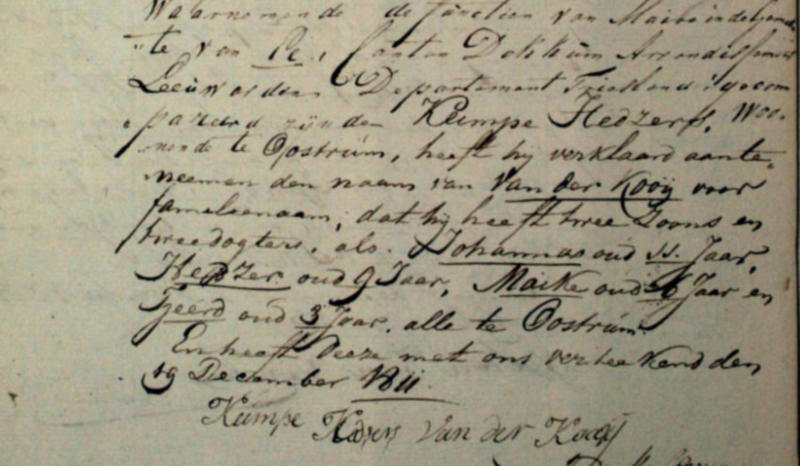 Waarnemende de functien van Maire in de gemeen
"te van Ee, Canton Dokkum Arrondissement
Leeuwarden Departement Friesland; gecom
pareerd zijnde Kumpe Hedzers, Woo-
nende te Oostrum, heeft hij verklaard aante-
neemen den naam van Van der Kooij voor
famieljenaam, dat hij heeft twee Zoons en
twee dogters, als. Johannes oud 11. Jaar,
Hedzer oud 9 Jaar, Maike oud 6 Jaar en
Geerd oud 3 Jaar, alle te Oostrum.
En heeft deeze met ons verteekend den
19 December 1811.
Kumpe Hedzers Van der Kooij